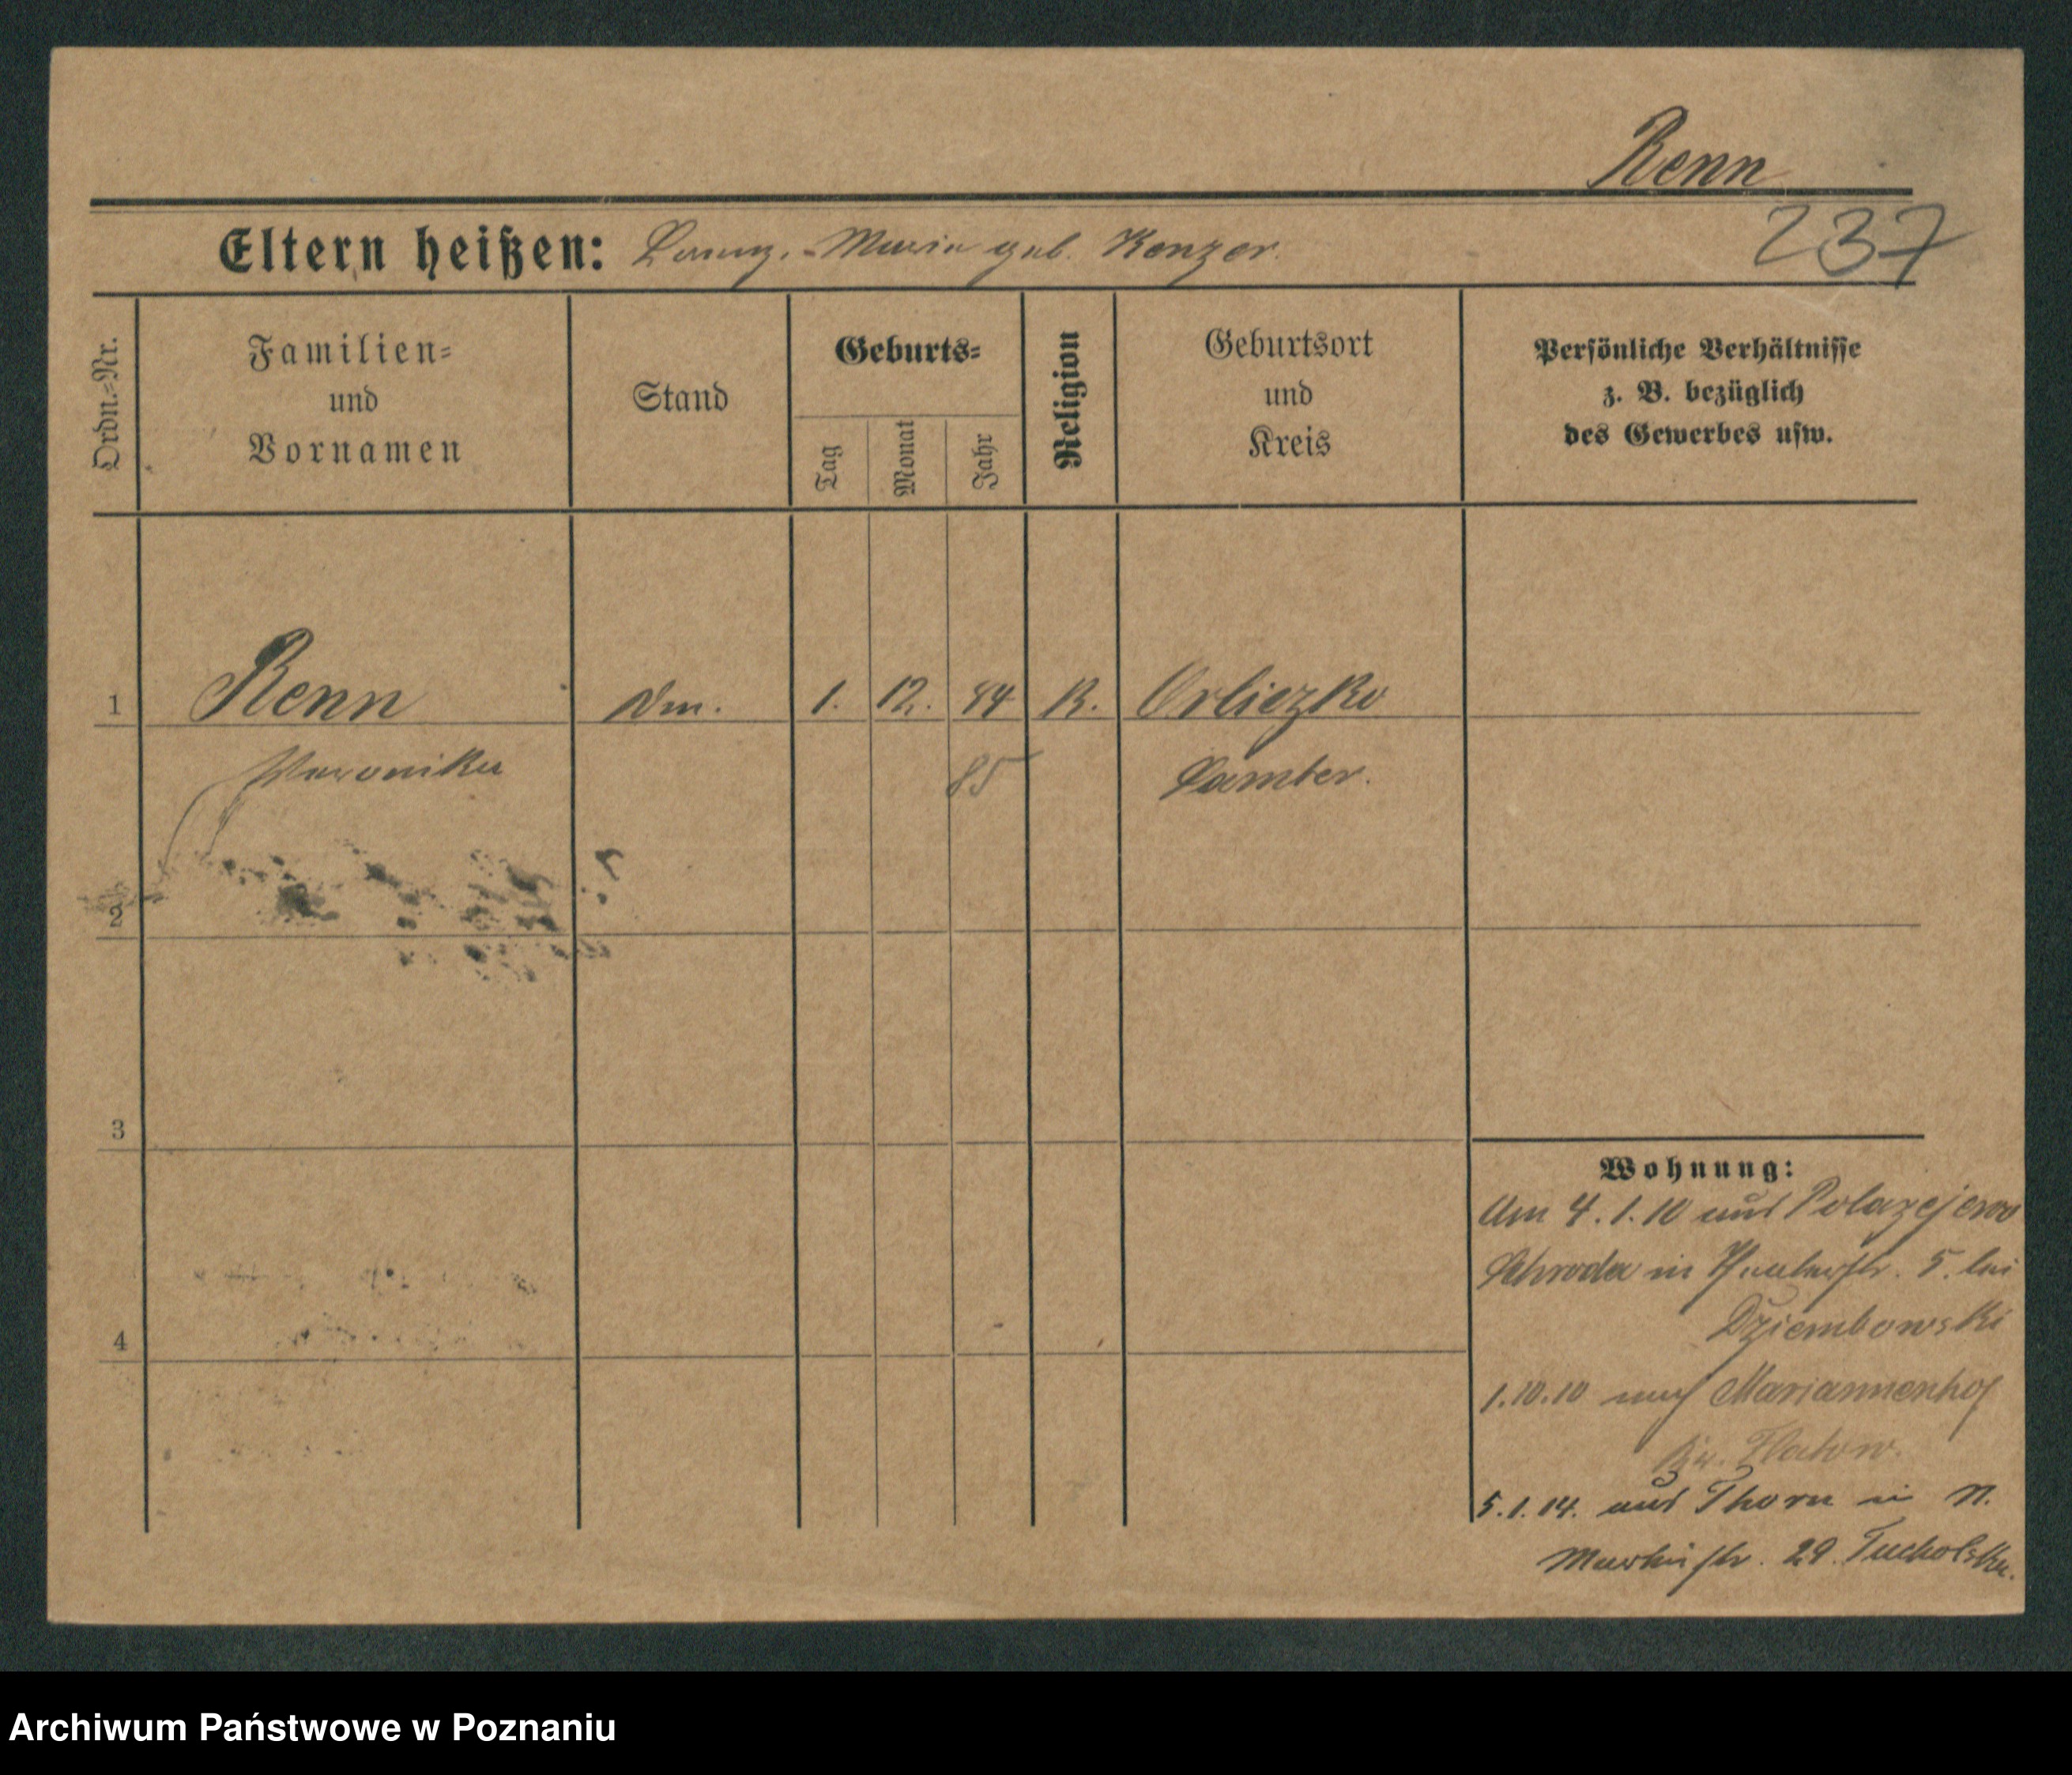 Renn
237
Eltern heißen: Lorenz. - Maria geb. Kenzer.
Ordn.=Nr.
Familien=
und
Vornamen
Stand
Geburts=
Tag
Monat
Jahr
Religion
Geburtsort
und
Kreis
Persönliche Verhältnisse
z. B. bezüglich
des Gewerbes usw.
1 Renn 1. 12. 84 K. Orliczko
Veronika 85 Samter.
2
3
4
Wohnung:
Am 4.1.10 aus
Schroda in 5. bei
Dziembowski
1.10.10 nach Mariannenhof
Kr. Flatow.
5.1.14. aus Thorn in N.
29. Tucholska.
Archiwum Państwowe w Poznaniu